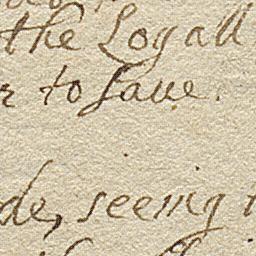 the Loyall
to saue.
de, seeing